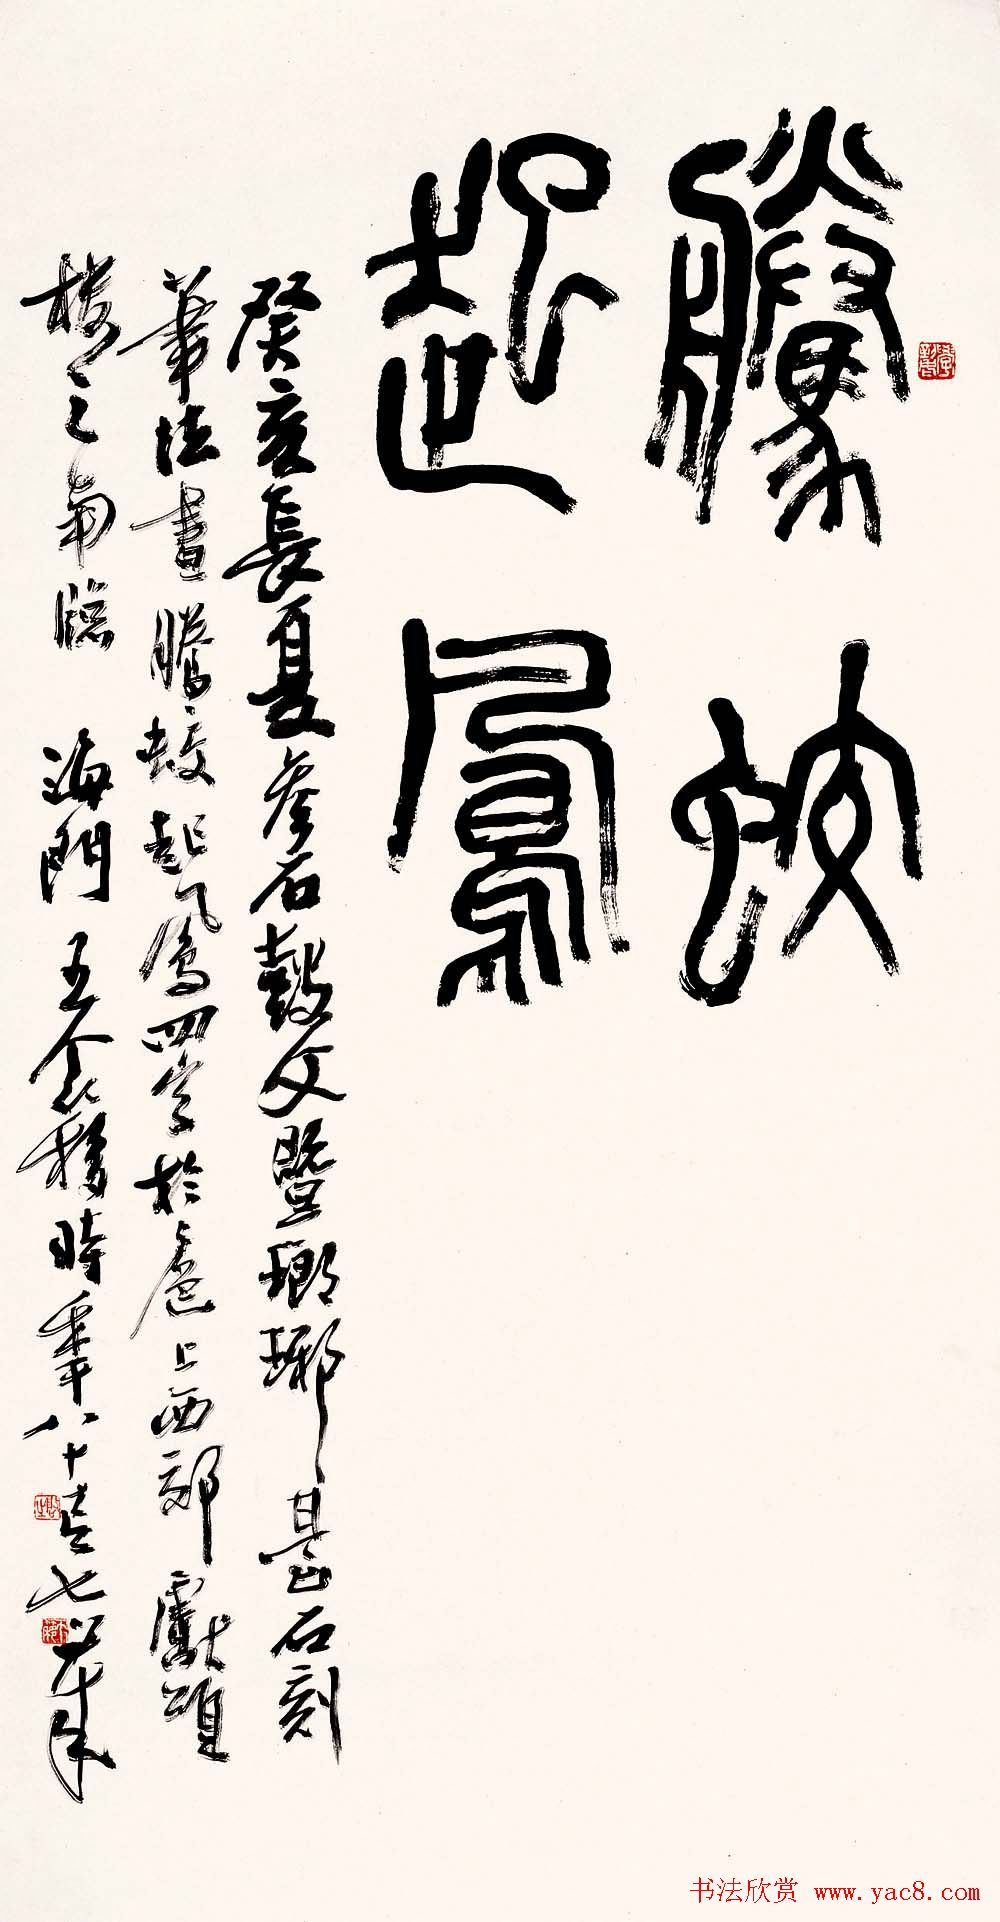 騰蛟
起鳳
癸亥長夏參石鼓文暨瑯琊臺石刻
筆法書騰蛟起鳳四字於滬上西郊獻頌
樓之南牕 海門王个簃時年八十又七
书法欣赏 www.yac8.com